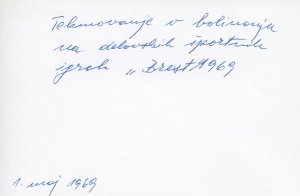 Tekmovanje v balinanju
na delavskih športnih
igrah „Brest" 1969
1. maj 1969